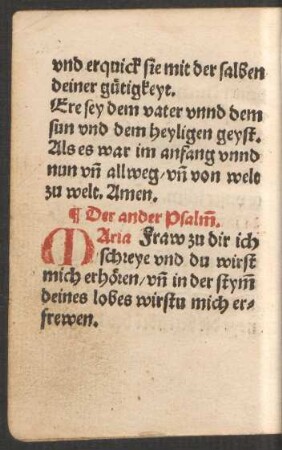 vnd erquick sie mit der salben
deiner gůtigkeyt.
Ere sey dem vater vnnd dem
sun vnd dem heyligen geyst.
Als es war im anfang vnnd
nun vñ allweg/ vñ von welt
zu welt. Amen.
¶ Der ander Psalm̃.
MAria Fraw zu dir ich
schreye vnd du wirst
mich erhören/ vñ in der stym̃
deines lobes wirstu mich er-
frewen.